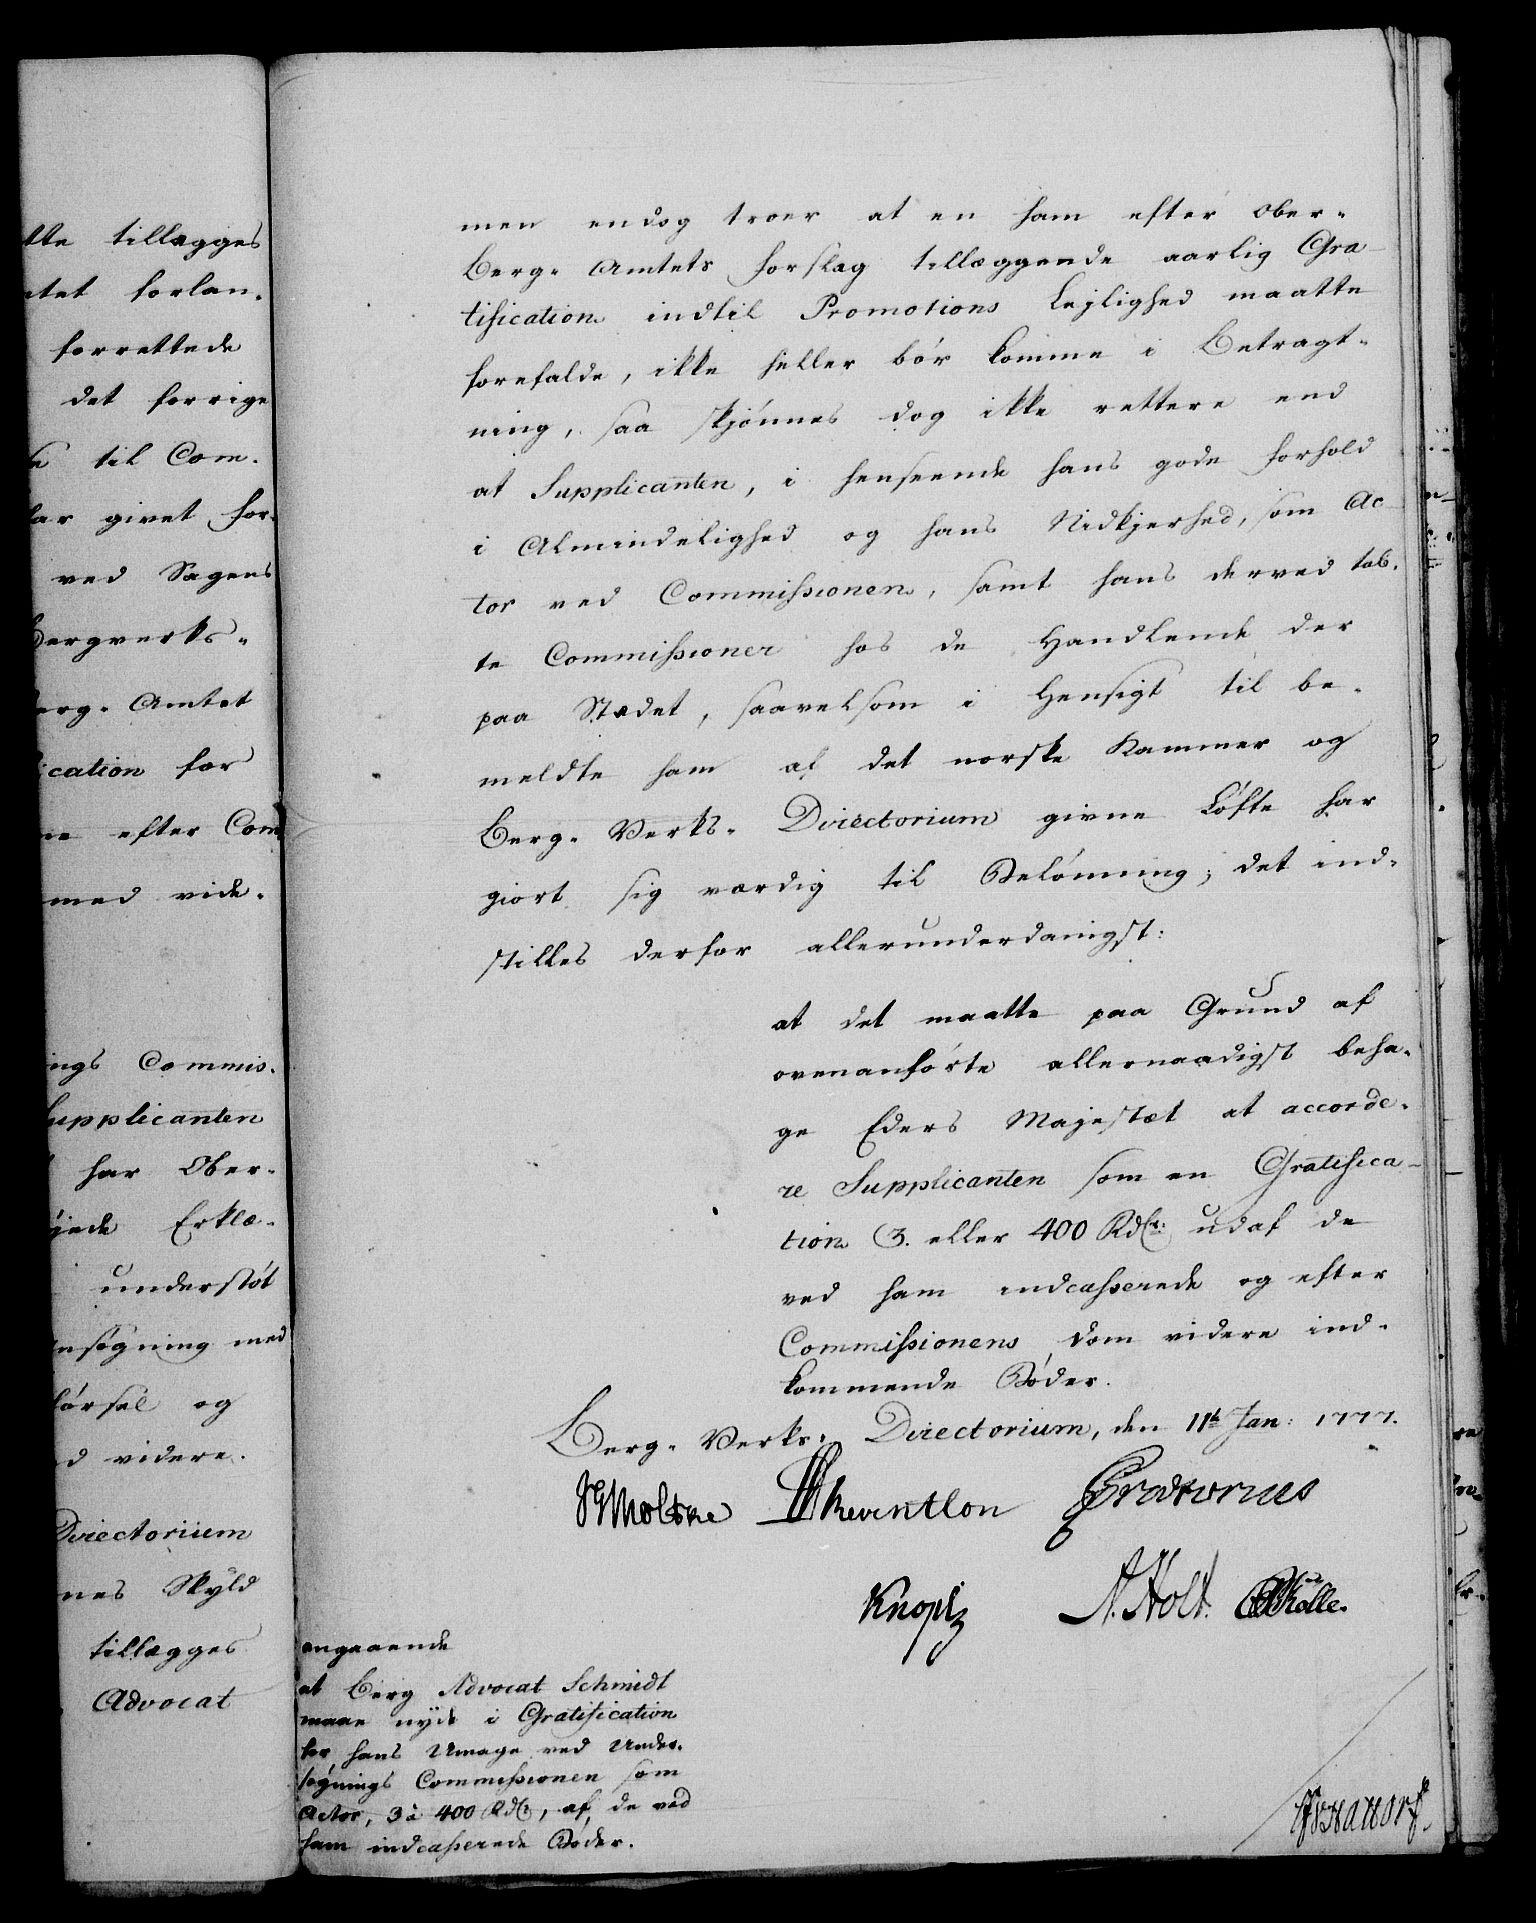 tte tillægges
tet forlan-
forrettede
det forrige
til Com-
har givet for-
ved Sagens
Bergverks-
erg- Amtet
ication for
ne efter Com
med vide-
ings Commis-
Supplicanten
har Ober-
jede Erklæ-
understøt
nsøgning med
førsel og
d videre.
Directorium
nes Skyld
tillægges
Advocat
men endog troer at en ham efter Ober-
Berg- Amtets Forslag tillæggende aarlig Gra-
tification indtil Promotions Lejlighed maatte
forefalde, ikke heller bør komme i Betragt-
ning, saa skjønnes dog ikke rettere end
at Supplicanten, i henseende hans gode Forhold
i Almindelighed og hans Nidkjerhed, som Ac-
tor ved Commissionen, samt hans derved tab-
te Commissioner hos de Handlende der
paa Stædet, saavelsom i Hensigt til be-
meldte ham af det norske Kammer og
Berg- Verks- Directorium givne Løfte har
giort sig værdig til Belønning; det ind-
stilles derfor allerunderdanigst:
at det maatte paa Grund af
ovenanførte allernaadigst beha-
ge Eders Majestæt at accorde-
re Supplicanten som en Gratifica-
tion 3. eller 400 Rdlr: udaf de
ved ham indcasserede og efter
Commissionens Dom videre ind-
kommende Bøder.
Berg- Verks- Directorium, den 11te Jan: 1777.
JGMoltke Reventlou Prætorius
Knoph A. Holt. Rolle.
angaaende
at Berg Advocat Schmidt
maae nyde i Gratification
for hans Umage ved Under-
søgnings Commissionen som
Actor, 3 à 400 Rdlr, af de ved
ham indcasserede Bøder.